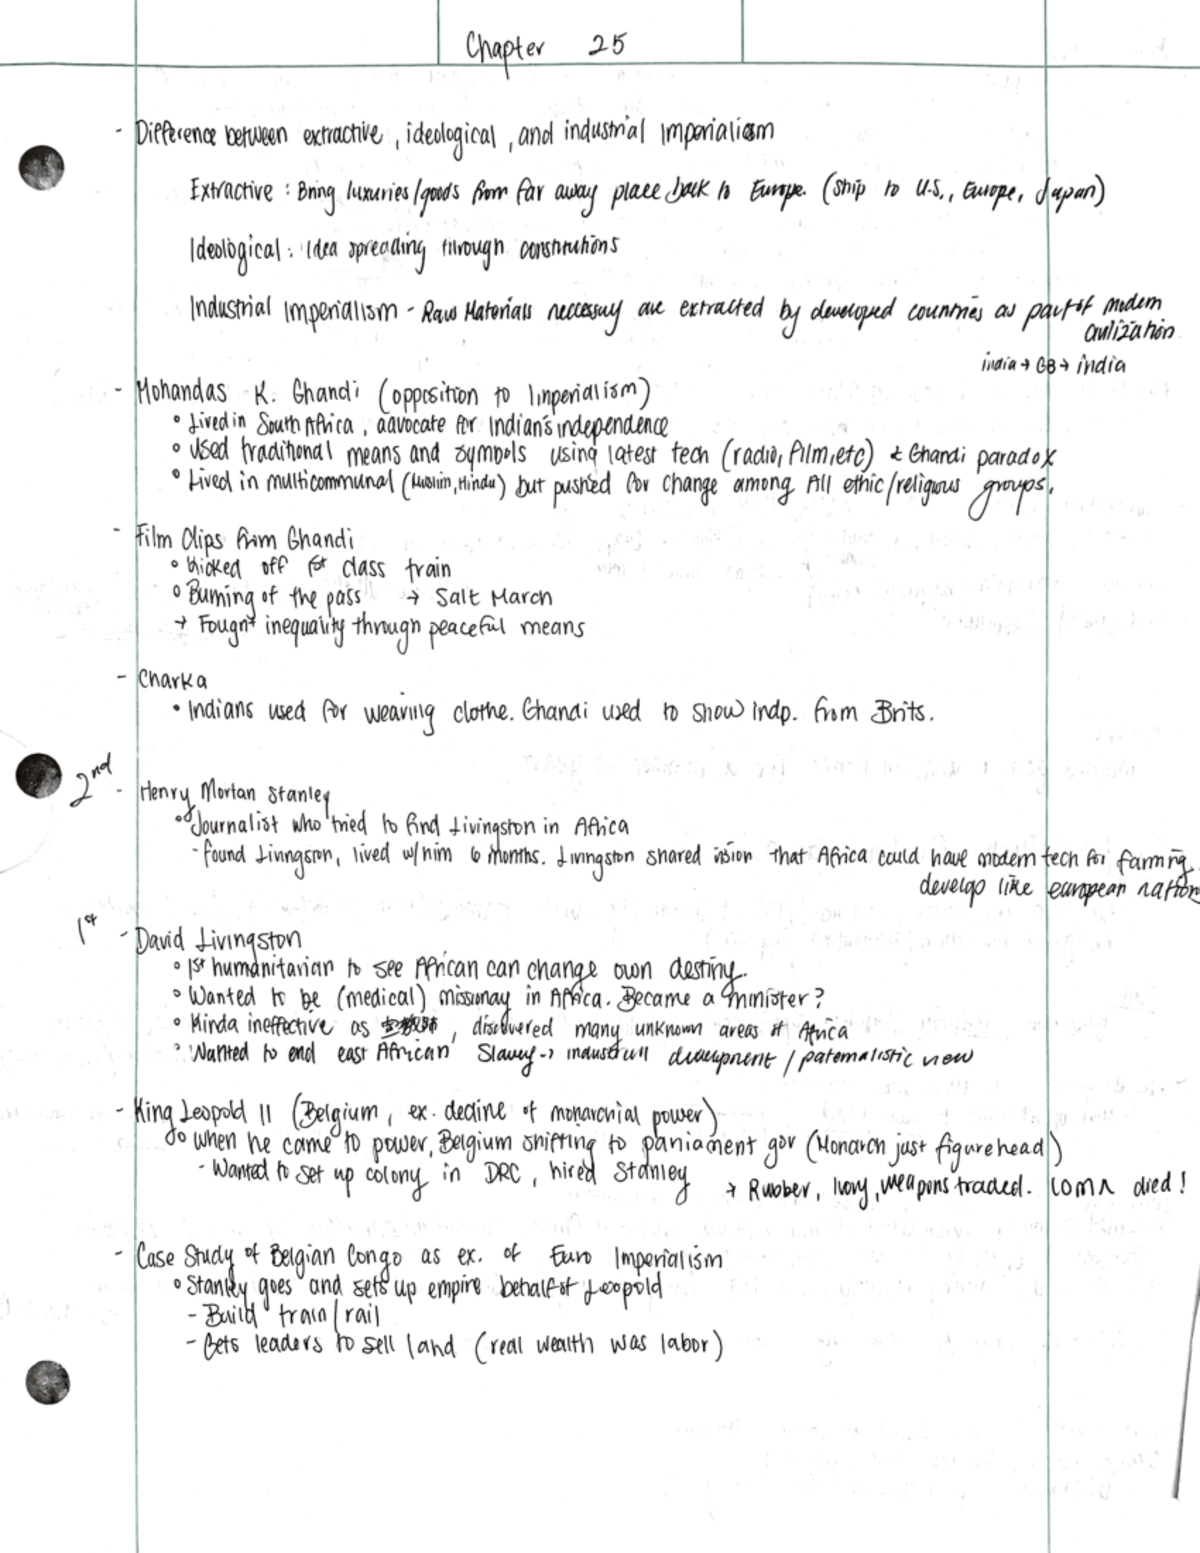 Chapter 25
- Difference between extractive, ideological, and industrial Imperialism
Extractive : Bring luxuries/goods from far away place back to Europe. (Ship to U.S., Europe, Japan)
Ideological : Idea spreading through constitutions
Industrial Imperialism - Raw Materials necessary are extracted by developed countries as part of modern
civilization
india → GB → india
- Mohandas K. Ghandi (opposition to Imperialism)
° Lived in South Africa, advocate for Indian's independence
° Used traditional means and symbols using latest tech (radio, film, etc) Ghandi paradox
° Lived in multicommunal (Muslim, Hindu) but pushed for change among All ethic/religious groups.
- Film Clips from Ghandi
° Kicked off 1st class train
° Burning of the pass → Salt March
→ Fought inequality through peaceful means
- Charka
• Indians used for weaving clothe. Ghandi used to show indp. from Brits.
2nd - Henry Mortan Stanley
° Journalist who tried to find Livingston in Africa
- found Livingston, lived w/him 6 months. Livingston shared vision that Africa could have modern tech for farming.
develop like european nations
1st - David Livingston
° 1st humanitarian to see African can change own destiny.
° Wanted to be (medical) missionay in Africa. Became a minister?
° Kinda ineffective as , discovered many unknown areas of Africa
° Wanted to end east African Slavey → industrial development / paternalistic view
- King Leopold II (Belgium, ex. decline of monarchial power)
° when he came to power, Belgium shifting to parliament gov (Monarch just figurehead)
- Wanted to set up colony in DRC, hired Stanley → Rubber, Ivory, weapons traded. 10mn died!
- Case Study of Belgian Congo as ex. of Euro Imperialism
° Stanley goes and sets up empire behalf of Leopold
- Build train/rail
- Gets leaders to sell land (real wealth was labor)